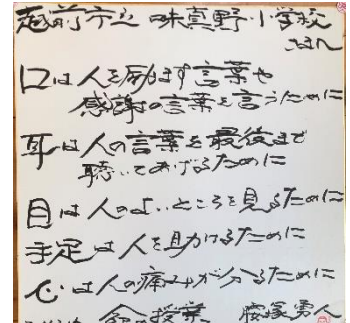 越前市立 味真野小学校
さまへ
口は人を励ます言葉や
感謝の言葉を言うために
耳は人の言葉を最後まで
聴いてあげるために
目は人のよいところを見るために
手足は人を助けるために
心は人の痛みが分るために
命の授業 腰塚勇人